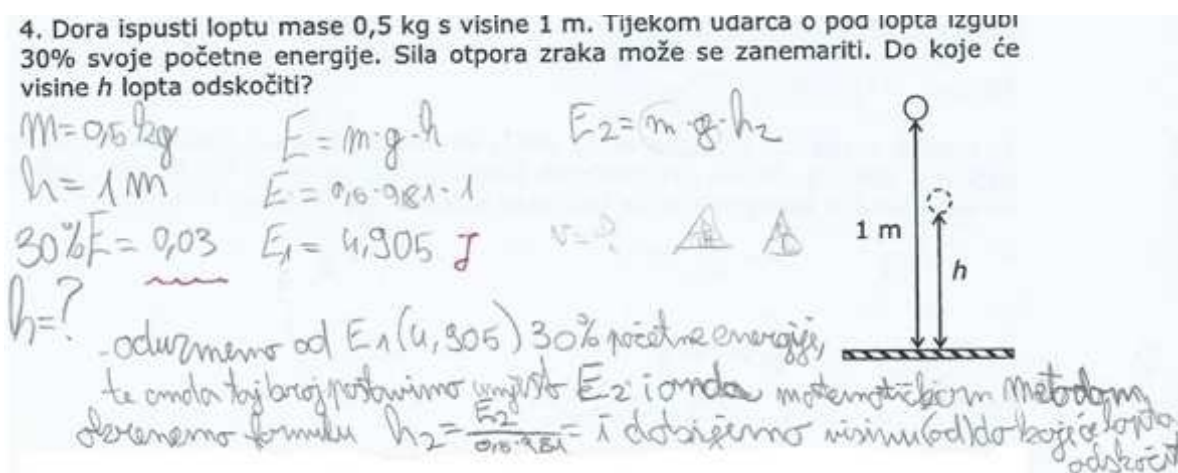 4. Dora ispusti loptu mase 0,5 kg s visine 1 m. Tijekom udarca o pod lopta izgubi
30% svoje početne energije. Sila otpora zraka može se zanemariti. Do koje će
visine h lopta odskočiti?
m=0,5 kg
E=m·g·h
E2=m·g·h2
h=1m
E=0,5·9,81·1
30%E=0,03
E1=4,905 J
1 m
h
h=?
- oduzmemo od E1(4,905) 30% početne energije,
te onda taj broj postavimo umjesto E2 i onda matematičkom metodom
okrenemo formulu h2=E2/0,5·9,81= i dobijemo visinu (od) do koje će lopta
odskočit